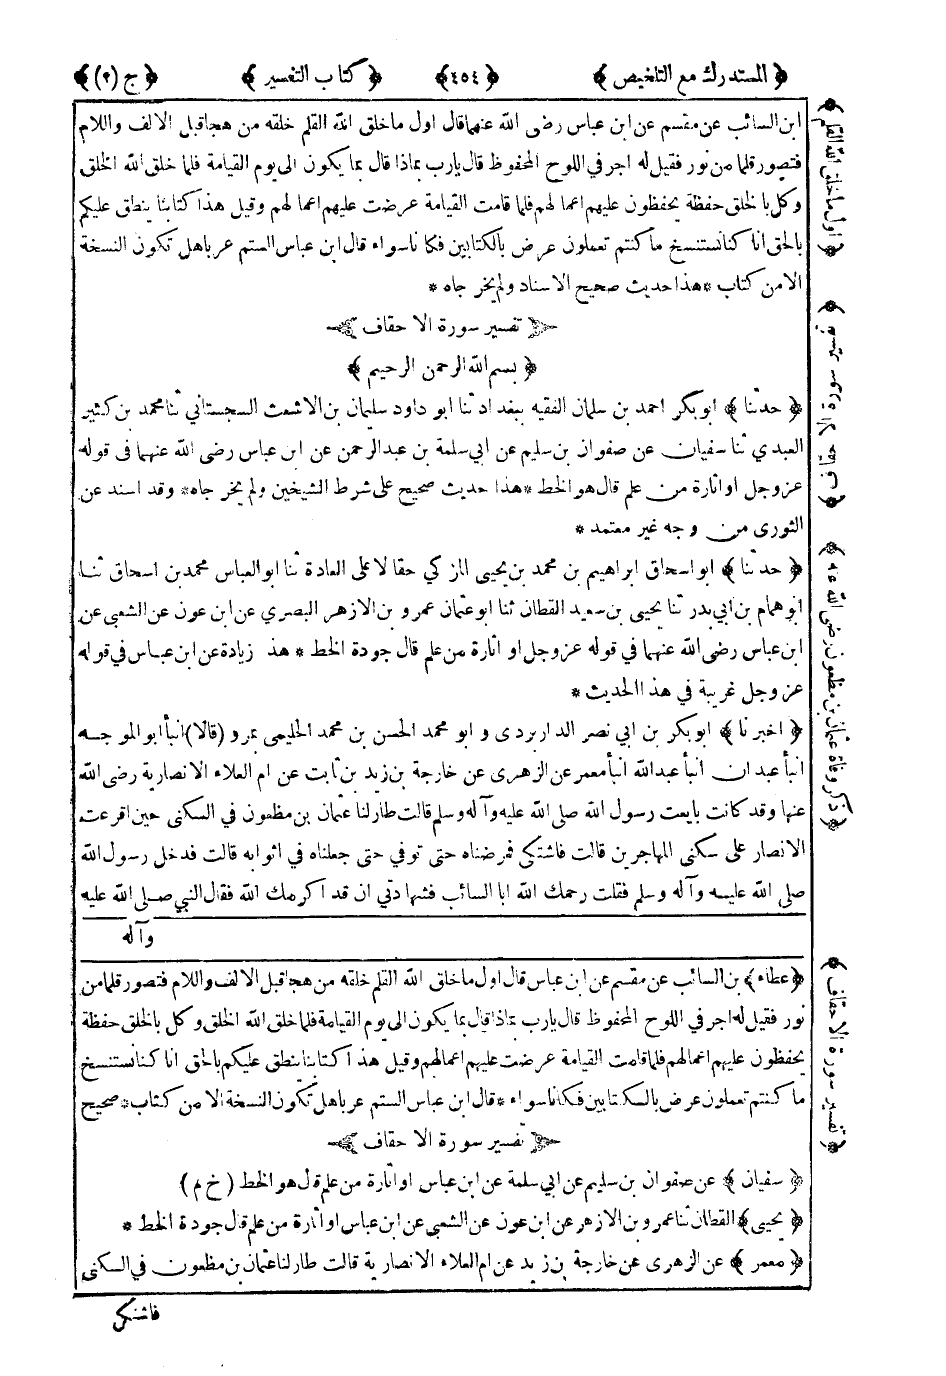 ﴿ المستدرك مع التلخيص ﴾ ﴿٤٥٤﴾ ﴿ كتاب التفسير ﴾ ﴿ ج (٢) ﴾
ابن السائب عن مقسم عن ابن عباس رضى الله عنهما قال اول ما خلق الله القلم خلقه من هجا قبل الالف واللام
فتصور قلما من نور فقيل له اجر في اللوح المحفوظ قال يارب بماذا قال بما يكون الى يوم القيامة فلما خلق الله الخلق
وكل بالخلق حفظة يحفظون عليهم اعمالهم فلما قامت القيامة عرضت عليهم اعمالهم وقيل هذا كتابنا ينطق عليكم
بالحق انا كنا نستنسخ ما كنتم تعملون عرض بالكتابين فكانا سواء قال ابن عباس الستم عربا هل تكون النسخة
الا من كتاب * هذا حديث صحيح الاسناد ولم يخرجاه *
تفسير سورة الاحقاف
﴿ بسم الله الرحمن الرحيم ﴾
﴿ حدثنا ﴾ ابو بكر احمد بن سلمان الفقيه ببغداد ثنا ابو داود سليمان بن الاشعث السجستاني ثنا محمد بن كثير
العبدي ثنا سفيان عن صفوان بن سليم عن ابي سلمة بن عبد الرحمن عن ابن عباس رضى الله عنهما فى قوله
عز وجل او اثارة من علم قال هو الخط * هذا حديث صحيح على شرط الشيخين ولم يخرجاه * وقد اسند عن
الثورى من وجه غير معتمد *
﴿ حدثنا ﴾ ابو اسحاق ابراهيم بن محمد بن يحيى المزكي حقا لا على العادة ثنا ابو العباس محمد بن اسحاق ثنا
ابو همام بن ابي بدر ثنا يحيى بن سعيد القطان ثنا ابو عثمان عمرو بن الازهر البصري عن ابن عون عن الشعبي عن
ابن عباس رضى الله عنهما في قوله عز وجل او اثارة من علم قال جودة الخط * هذه زيادة عن ابن عباس في قوله
عز وجل غريبة في هذا الحديث *
﴿ اخبرنا ﴾ ابو بكر بن ابي نصر الداربردى و ابو محمد الحسن بن محمد الحليمى بمرو (قالا) انبأ ابو الموجه
انبأ عبدان انبأ عبدالله انبأ معمر عن الزهرى عن خارجة بن زيد بن ثابت عن ام العلاء الانصارية رضى الله
عنها وقد كانت بايعت رسول الله صلى الله عليه وآله وسلم قالت طار لنا عثمان بن مظعون في السكنى حين اقرعت
الانصار على سكنى المهاجرين قالت فاشتكى فمرضناه حتى توفي حتى جعلناه في اثوابه قالت فدخل رسول الله
صلى الله عليه وآله وسلم فقلت رحمك الله ابا السائب فشهادتي ان قد اكرمك الله فقال النبي صلى الله عليه
وآله
﴿عطاء﴾ بن السائب عن مقسم عن ابن عباس قال اول ما خلق الله القلم خلقه من هجا قبل الالف واللام فتصور قلما من
نور فقيل له اجر في اللوح المحفوظ قال يارب بماذا قال بما يكون الى يوم القيامة فلما خلق الله الخلق وكل بالخلق حفظة
يحفظون عليهم اعمالهم فلما قامت القيامة عرضت عليهم اعمالهم وقيل هذا كتابنا ينطق عليكم بالحق انا كنا نستنسخ
ما كنتم تعملون عرض بالكتابين فكانا سواء * قال ابن عباس الستم عربا هل تكون النسخة الا من كتاب * صحيح
تفسير سورة الاحقاف
﴿ سفيان ﴾ عن صفوان بن سليم عن ابي سلمة عن ابن عباس او اثارة من علم قال هو الخط (خ م)
﴿ يحيى ﴾ القطان ثنا عمرو بن الازهر عن ابن عون عن الشعبي عن ابن عباس او اثارة من علم قال جودة الخط *
﴿ معمر ﴾ عن الزهرى عن خارجة بن زيد عن ام العلاء الانصارية قالت طار لنا عثمان بن مظعون في السكنى
فاشتكى
﴿ اول ما خلق الله القلم ﴾
﴿ ذكر وفاة عثمان بن مظعون رضى الله عنه ﴾
﴿ تفسير سورة الاحقاف ﴾